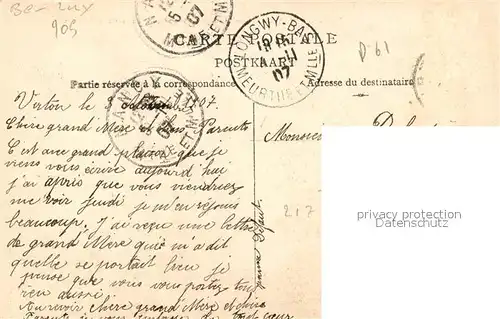 Be-Lux
905
NANCY
07
LONGWY-BAS
MEURTHE ET MLLE
07
D 61
CARTE POSTALE
POSTKAART
Partie réservée à la correspondance
Adresse du destinataire
Virton le 3 1907.
Chère grand Mère et chers Parents
C'est avec grand plaisir que je
viens vous écrire aujourd'hui
j'ai apris que vous viendriez
me voir jeudi je m'en réjouis
beaucoup, J'ai reçu une lettre
de grand Mère qui m'a dit
quelle se portait bien je
pense que vous vous portez tous
bien aussi
Au revoir chère grand Mère et chers
Parents je vous embrasse du tout cœur
Monsieur
217
privacy protection
Datenschutz